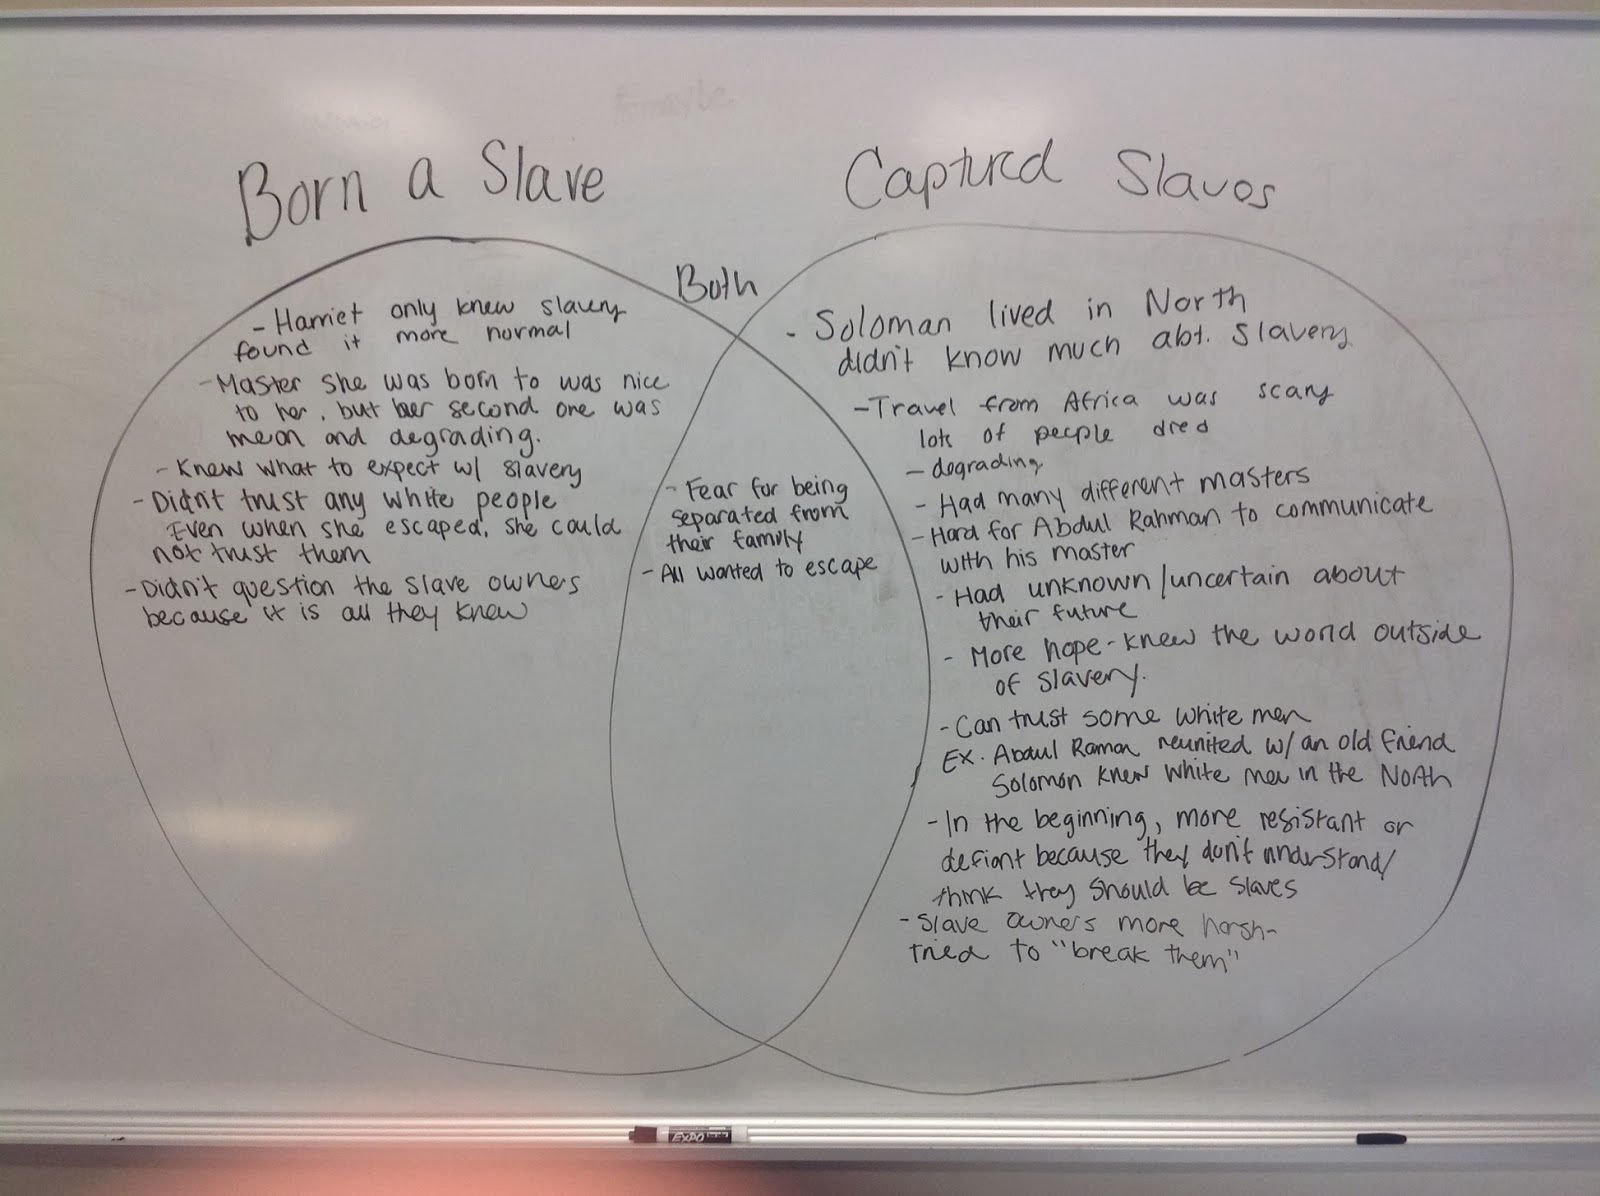 Born a Slave
Captured Slaves
Both
- Harriet only knew slavery
found it more normal
- Master she was born to was nice
to her, but her second one was
mean and degrading.
- Knew what to expect w/ slavery
- Didn't trust any white people
Even when she escaped, she could
not trust them
- Didn't question the slave owners
because it is all they knew
- Fear for being
separated from
their family
- All wanted to escape
- Soloman lived in North
didn't know much abt. slavery
- Travel from Africa was scary
lots of people died
- degrading
- Had many different masters
- Hard for Abdul Rahman to communicate
with his master
- Had unknown/uncertain about
their future
- More hope - knew the world outside
of slavery.
- Can trust some white men
Ex. Abdul Raman reunited w/ an old friend
Solomon knew white men in the North
- In the beginning, more resistant or
defiant because they don't understand/
think they should be slaves
- Slave owners more harsh -
tried to "break them"
EXPO